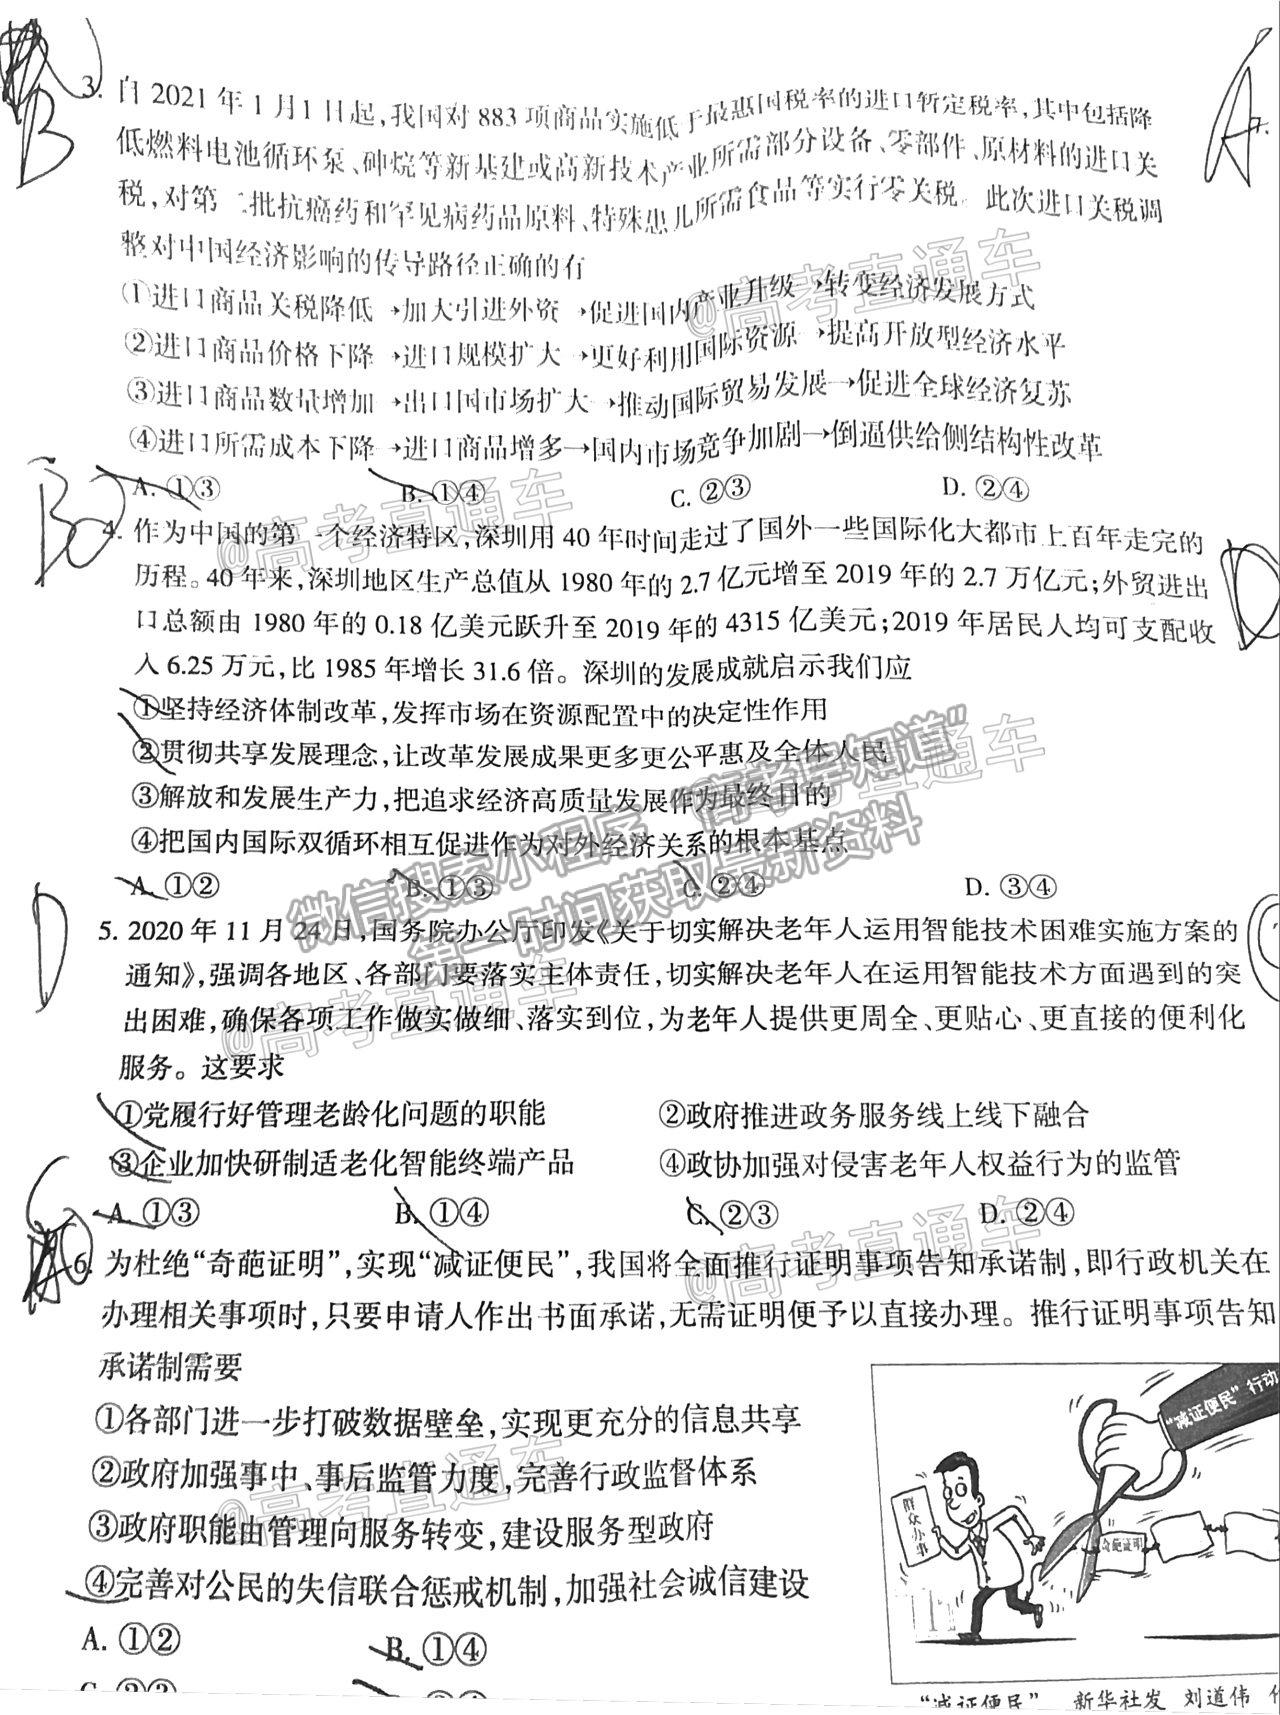 3. 自 2021 年 1 月 1 日起,我国对 883 项商品实施低于最惠国税率的进口暂定税率,其中包括降
低燃料电池循环泵、砷烷等新基建或高新技术产业所需部分设备、零部件、原材料的进口关
税,对第二批抗癌药和罕见病药品原料、特殊患儿所需食品等实行零关税。此次进口关税调
整对中国经济影响的传导路径正确的有
①进口商品关税降低→加大引进外资→促进国内产业升级→转变经济发展方式
②进口商品价格下降→进口规模扩大→更好利用国际资源→提高开放型经济水平
③进口商品数量增加→出口国市场扩大→推动国际贸易发展→促进全球经济复苏
④进口所需成本下降→进口商品增多→国内市场竞争加剧→倒逼供给侧结构性改革
A. ①③ B. ①④ C. ②③ D. ②④
4. 作为中国的第一个经济特区,深圳用 40 年时间走过了国外一些国际化大都市上百年走完的
历程。40 年来,深圳地区生产总值从 1980 年的 2.7 亿元增至 2019 年的 2.7 万亿元;外贸进出
口总额由 1980 年的 0.18 亿美元跃升至 2019 年的 4315 亿美元;2019 年居民人均可支配收
入 6.25 万元,比 1985 年增长 31.6 倍。深圳的发展成就启示我们应
①坚持经济体制改革,发挥市场在资源配置中的决定性作用
②贯彻共享发展理念,让改革发展成果更多更公平惠及全体人民
③解放和发展生产力,把追求经济高质量发展作为最终目的
④把国内国际双循环相互促进作为对外经济关系的根本基点
A. ①② B. ①③ C. ②④ D. ③④
5. 2020 年 11 月 24 日,国务院办公厅印发《关于切实解决老年人运用智能技术困难实施方案的
通知》,强调各地区、各部门要落实主体责任,切实解决老年人在运用智能技术方面遇到的突
出困难,确保各项工作做实做细、落实到位,为老年人提供更周全、更贴心、更直接的便利化
服务。这要求
①党履行好管理老龄化问题的职能 ②政府推进政务服务线上线下融合
③企业加快研制适老化智能终端产品 ④政协加强对侵害老年人权益行为的监管
A. ①③ B. ①④ C. ②③ D. ②④
6. 为杜绝“奇葩证明”,实现“减证便民”,我国将全面推行证明事项告知承诺制,即行政机关在
办理相关事项时,只要申请人作出书面承诺,无需证明便予以直接办理。推行证明事项告知
承诺制需要
①各部门进一步打破数据壁垒,实现更充分的信息共享
②政府加强事中、事后监管力度,完善行政监督体系
③政府职能由管理向服务转变,建设服务型政府
④完善对公民的失信联合惩戒机制,加强社会诚信建设
A. ①② B. ①④
C. ②③
“减证便民”行动
群众办事
奇葩证明
“减证便民” 新华社发 刘道伟
B
A
B
D
D
@高考直通车
@高考直通车
@高考直通车
@高考直通车
@高考直通车
@高考直通车
微信搜索小程序“高考早知道”
第一时间获取最新资料